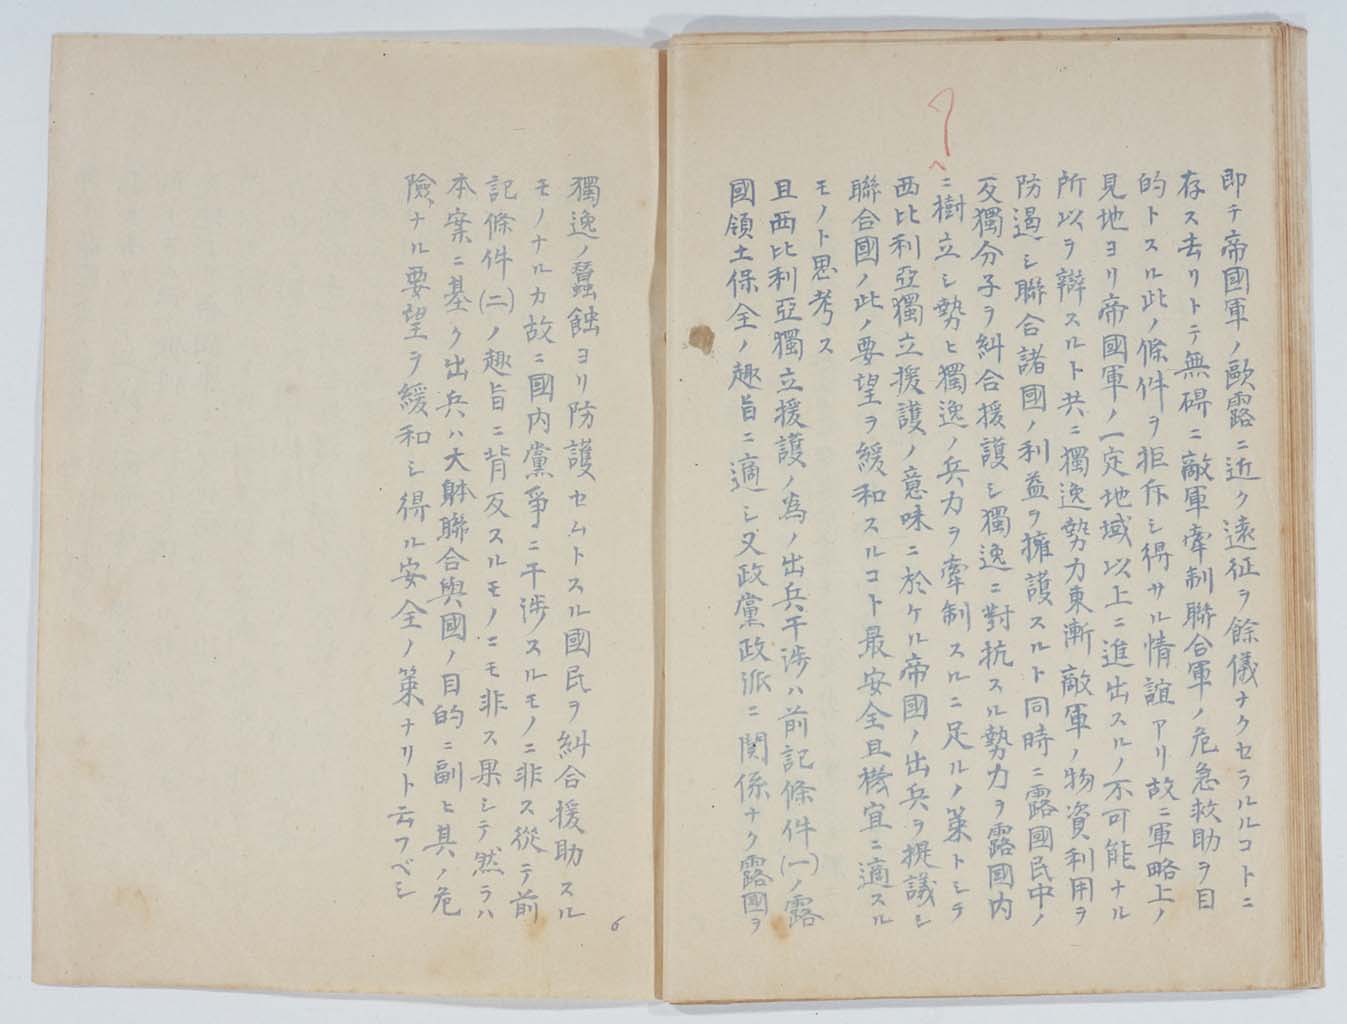 即チ帝國軍ノ歐露ニ近ク遠征ヲ餘儀ナクセラルルコトニ
存ス去リトテ無碍ニ敵軍牽制聯合軍ノ危急救助ヲ目
的トスル此ノ條件ヲ拒斥シ得サル情誼アリ故ニ軍略上ノ
見地ヨリ帝國軍ノ一定地域以上ニ進出スルノ不可能ナル
所以ヲ辯スルト共ニ獨逸勢力東漸敵軍ノ物資利用ヲ
防遏シ聯合諸國ノ利益ヲ擁護スルト同時ニ露國民中ノ
反獨分子ヲ糾合援護シ獨逸ニ對抗スル勢力ヲ露國内
ニ樹立シ勢ヒ獨逸ノ兵力ヲ牽制スルニ足ルノ策トシテ
西比利亞獨立援護ノ意味ニ於ケル帝國ノ出兵ヲ提議シ
聯合國ノ此ノ要望ヲ緩和スルコト最安全且機宜ニ適スル
モノト思考ス
且西比利亞獨立援護ノ為ノ出兵干涉ハ前記條件(一)ノ露
國領土保全ノ趣旨ニ適シ又政黨政派ニ関係ナク露國ヲ
獨逸ノ蠶蝕ヨリ防護セムトスル國民ヲ糾合援助スル
モノナルカ故ニ國内黨爭ニ干涉スルモノニ非ス從テ前
記條件(二)ノ趣旨ニ背反スルモノニモ非ス果シテ然ラハ
本案ニ基ク出兵ハ大躰聯合與國ノ目的ニ副ヒ其ノ危
險ナル要望ヲ緩和シ得ル安全ノ策ナリト云フベシ
6